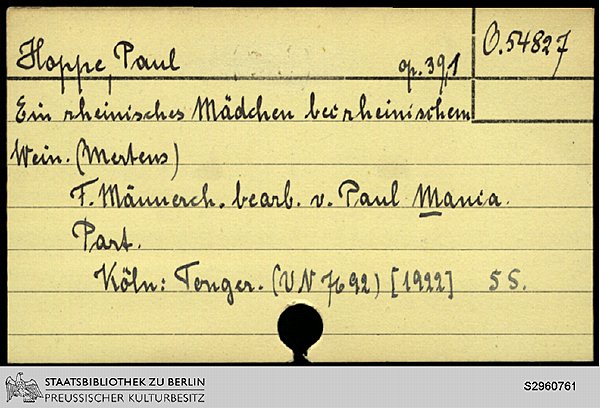 Hoppe, Paul op. 39,1 O. 54827
Ein rheinisches Mädchen bei rheinischem
Wein. (Mertens)
F. Männerch. bearb. v. Paul Mania.
Part.
Köln: Tonger. (VN 7692) [1922] 5 S.
STAATSBIBLIOTHEK ZU BERLIN
PREUSSISCHER KULTURBESITZ
S2960761